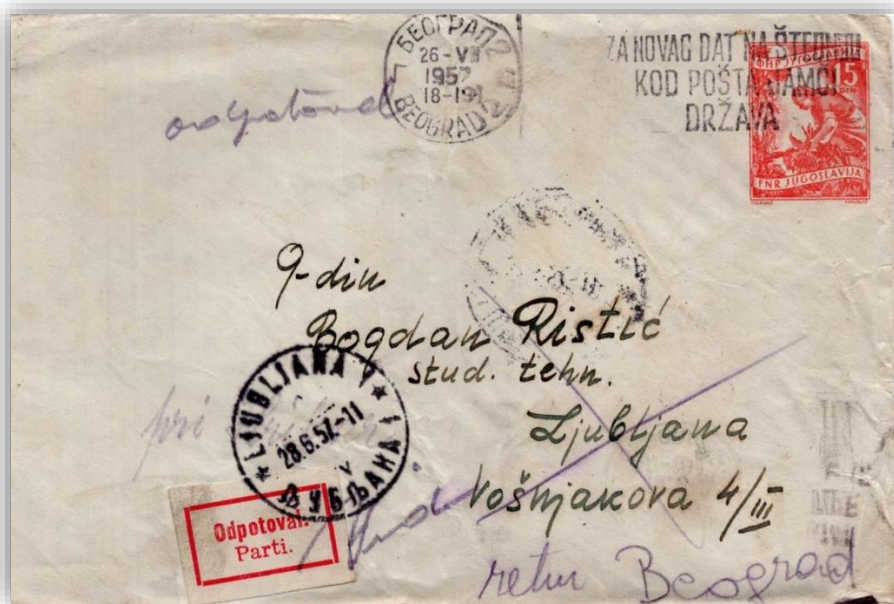 БЕОГРАД 2
26-VI
1957
18-19
BEOGRAD 2
ZA NOVAC DAT NA ŠTEDNJU
KOD POŠTA JAMČI
DRŽAVA
ФНР ЈУГОСЛАВИЈА
15
DIN
FNR JUGOSLAVIJA
odpotoval
G-din
Bogdan Ristić
stud. tehn.
Ljubljana
Vošnjakova 4/III
LJUBLJANA 1
28.6.57-11
V
ЉУБЉАНА 1
pri
Odpotoval.
Parti.
retur Beograd